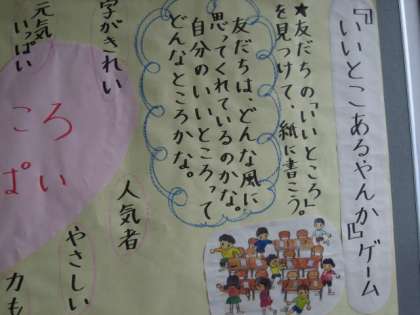 『いいとこあるやんか』ゲーム
★友だちの「いいところ」
を見つけて、紙に書こう。
友だちは、どんな風に
思ってくれているのかな。
自分のいいところって
どんなところかな。
字がきれい
元気
いっぱい
ころ
ぱい
人気者
やさしい
力も